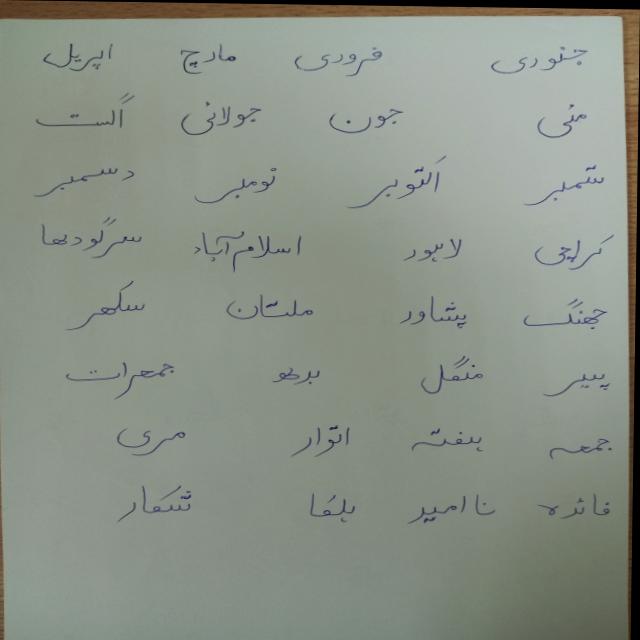 جنوری فروری مارچ اپریل
مئی جون جولائی اگست
ستمبر اکتوبر نومبر دسمبر
کراچی لاہور اسلام آباد سرگودھا
جھنگ پشاور ملتان سکھر
پیر منگل بدھ جمعرات
جمعہ ہفتہ اتوار مری
فائدہ ناامید ہلکا